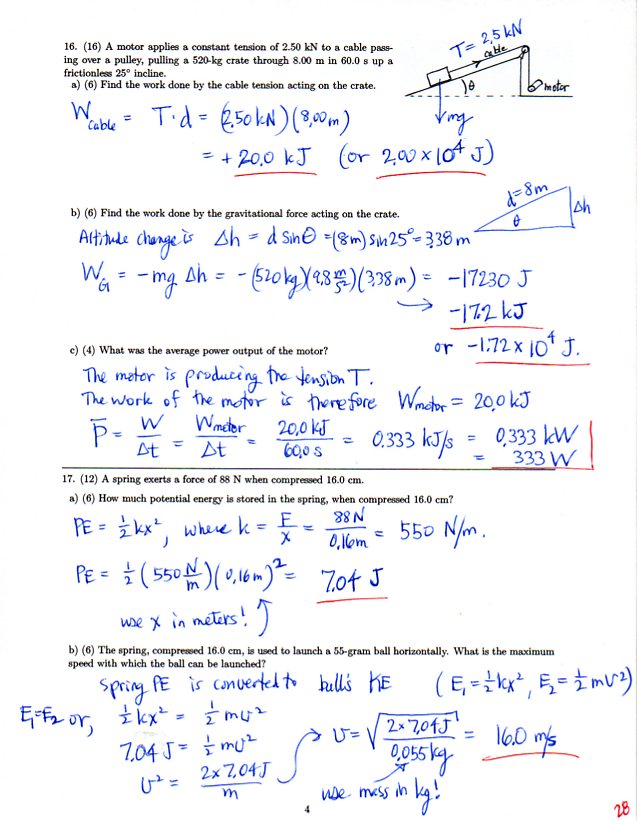 16. (16) A motor applies a constant tension of 2.50 kN to a cable pass-
ing over a pulley, pulling a 520-kg crate through 8.00 m in 60.0 s up a
frictionless 25° incline.
a) (6) Find the work done by the cable tension acting on the crate.
T = 2.5 kN
cable
θ
motor
mg
W_cable = T·d = (2.50 kN)(8.00 m)
= +20.0 kJ (or 2.00 × 10⁴ J)
b) (6) Find the work done by the gravitational force acting on the crate.
d=8m
θ
Δh
Altitude change is Δh = d sinθ = (8m) sin 25° = 3.38 m
W_G = -mg Δh = -(520 kg)(9.8 m/s²)(3.38 m) = -17230 J
→ -17.2 kJ
or -1.72 × 10⁴ J.
c) (4) What was the average power output of the motor?
The motor is producing the tension T.
The work of the motor is therefore W_motor = 20.0 kJ
P̅ = W/Δt = W_motor/Δt = 20.0 kJ/60.0 s = 0.333 kJ/s = 0.333 kW
= 333 W
17. (12) A spring exerts a force of 88 N when compressed 16.0 cm.
a) (6) How much potential energy is stored in the spring, when compressed 16.0 cm?
PE = ½kx², where k = F/x = 88N/0.16m = 550 N/m.
PE = ½(550 N/m)(0.16m)² = 7.04 J
use x in meters!
b) (6) The spring, compressed 16.0 cm, is used to launch a 55-gram ball horizontally. What is the maximum
speed with which the ball can be launched?
Spring PE is converted to ball's KE (E₁ = ½kx², E₂ = ½mv²)
E₁=E₂ or, ½kx² = ½mv²
7.04 J = ½mv²
v² = 2×7.04J/m
→ v = √(2×7.04J/0.055kg) = 16.0 m/s
use mass in kg!
4
28